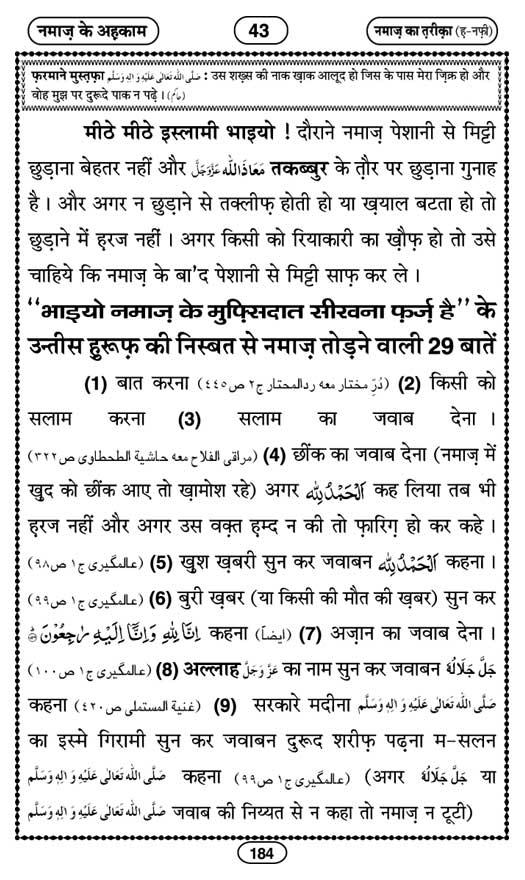 नमाज़ के अह़काम
43
नमाज़ का त़रीक़ा (ह़-नफ़ी)
फ़रमाने मुस्त़फ़ा صَلَّى اللّٰهُ تَعَالٰى عَلَيْهِ وَاٰلِهٖ وَسَلَّم : उस शख़्स की नाक ख़ाक आलूद हो जिस के पास मेरा ज़िक्र हो और
वोह मुझ पर दुरूदे पाक न पढ़े। (حاکم)
मीठे मीठे इस्लामी भाइयो ! दौराने नमाज़ पेशानी से मिट्टी
छुड़ाना बेहतर नहीं और مَعَاذَاللّٰه عَزَّوَجَلَّ तकब्बुर के त़ौर पर छुड़ाना गुनाह
है। और अगर न छुड़ाने से तक्लीफ़ होती हो या ख़याल बटता हो तो
छुड़ाने में ह़रज नहीं। अगर किसी को रियाकारी का ख़ौफ़ हो तो उसे
चाहिये कि नमाज़ के बा'द पेशानी से मिट्टी साफ़ कर ले।
"भाइयो नमाज़ के मुफ़्सिदात सीखना फ़र्ज़ है" के
उन्तीस हुरूफ़ की निस्बत से नमाज़ तोड़ने वाली 29 बातें
(1) बात करना (دُرِّ مختار معه ردالمحتار ج٢ ص٤٤٥) (2) किसी को
सलाम करना (3) सलाम का जवाब देना।
(مراقی الفلاح معه حاشیة الطحطاوی ص٣٢٢) (4) छींक का जवाब देना (नमाज़ में
ख़ुद को छींक आए तो ख़ामोश रहे) अगर اَلْحَمْدُ لِلّٰه कह लिया तब भी
ह़रज नहीं और अगर उस वक़्त ह़म्द न की तो फ़ारिग़ हो कर कहे।
(عالمگیری ج١ ص٩٨) (5) ख़ुश ख़बरी सुन कर जवाबन اَلْحَمْدُ لِلّٰه कहना।
(عالمگیری ج١ ص٩٩) (6) बुरी ख़बर (या किसी की मौत की ख़बर) सुन कर
اِنَّا لِلّٰهِ وَاِنَّاۤ اِلَيْهِ رٰجِعُوْنَ कहना (ایضاً) (7) अज़ान का जवाब देना।
(عالمگیری ج١ ص١٠٠) (8) अल्लाह عَزَّوَجَلَّ का नाम सुन कर जवाबन جَلَّ جَلَالُهٗ
कहना (غنیة المستملی ص٤٢٠) (9) सरकारे मदीना صَلَّى اللّٰهُ تَعَالٰى عَلَيْهِ وَاٰلِهٖ وَسَلَّم
का इस्मे गिरामी सुन कर जवाबन दुरूद शरीफ़ पढ़ना म-सलन
صَلَّى اللّٰهُ تَعَالٰى عَلَيْهِ وَاٰلِهٖ وَسَلَّم कहना (عالمگیری ج١ ص٩٩) (अगर جَلَّ جَلَالُهٗ या
صَلَّى اللّٰهُ تَعَالٰى عَلَيْهِ وَاٰلِهٖ وَسَلَّم जवाब की निय्यत से न कहा तो नमाज़ न टूटी)
184